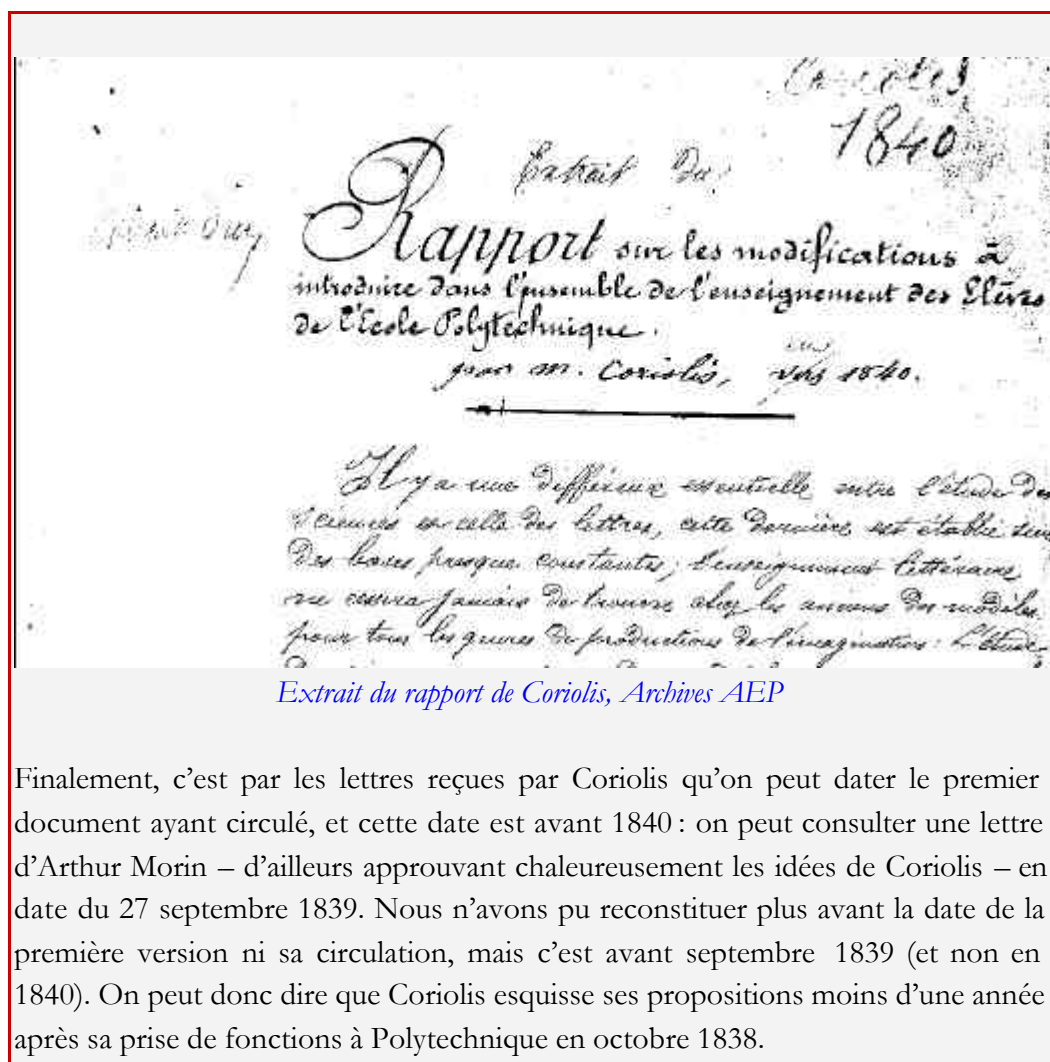 Coriolis
1840
Extrait du
Rapport sur les modifications à
introduire dans l'ensemble de l'enseignement des Elèves
de l'Ecole Polytechnique.
par M. Coriolis, vers 1840.
Il y a une différence essentielle entre l'étude des
sciences et celle des lettres, cette dernière est établie sur
des bases presque constantes; l'enseignement littéraire
ne cessera jamais de trouver chez les anciens des modèles
pour tous les genres de productions de l'imagination: L'étude
Extrait du rapport de Coriolis, Archives AEP
Finalement, c’est par les lettres reçues par Coriolis qu’on peut dater le premier
document ayant circulé, et cette date est avant 1840 : on peut consulter une lettre
d’Arthur Morin – d’ailleurs approuvant chaleureusement les idées de Coriolis – en
date du 27 septembre 1839. Nous n’avons pu reconstituer plus avant la date de la
première version ni sa circulation, mais c’est avant septembre 1839 (et non en
1840). On peut donc dire que Coriolis esquisse ses propositions moins d’une année
après sa prise de fonctions à Polytechnique en octobre 1838.